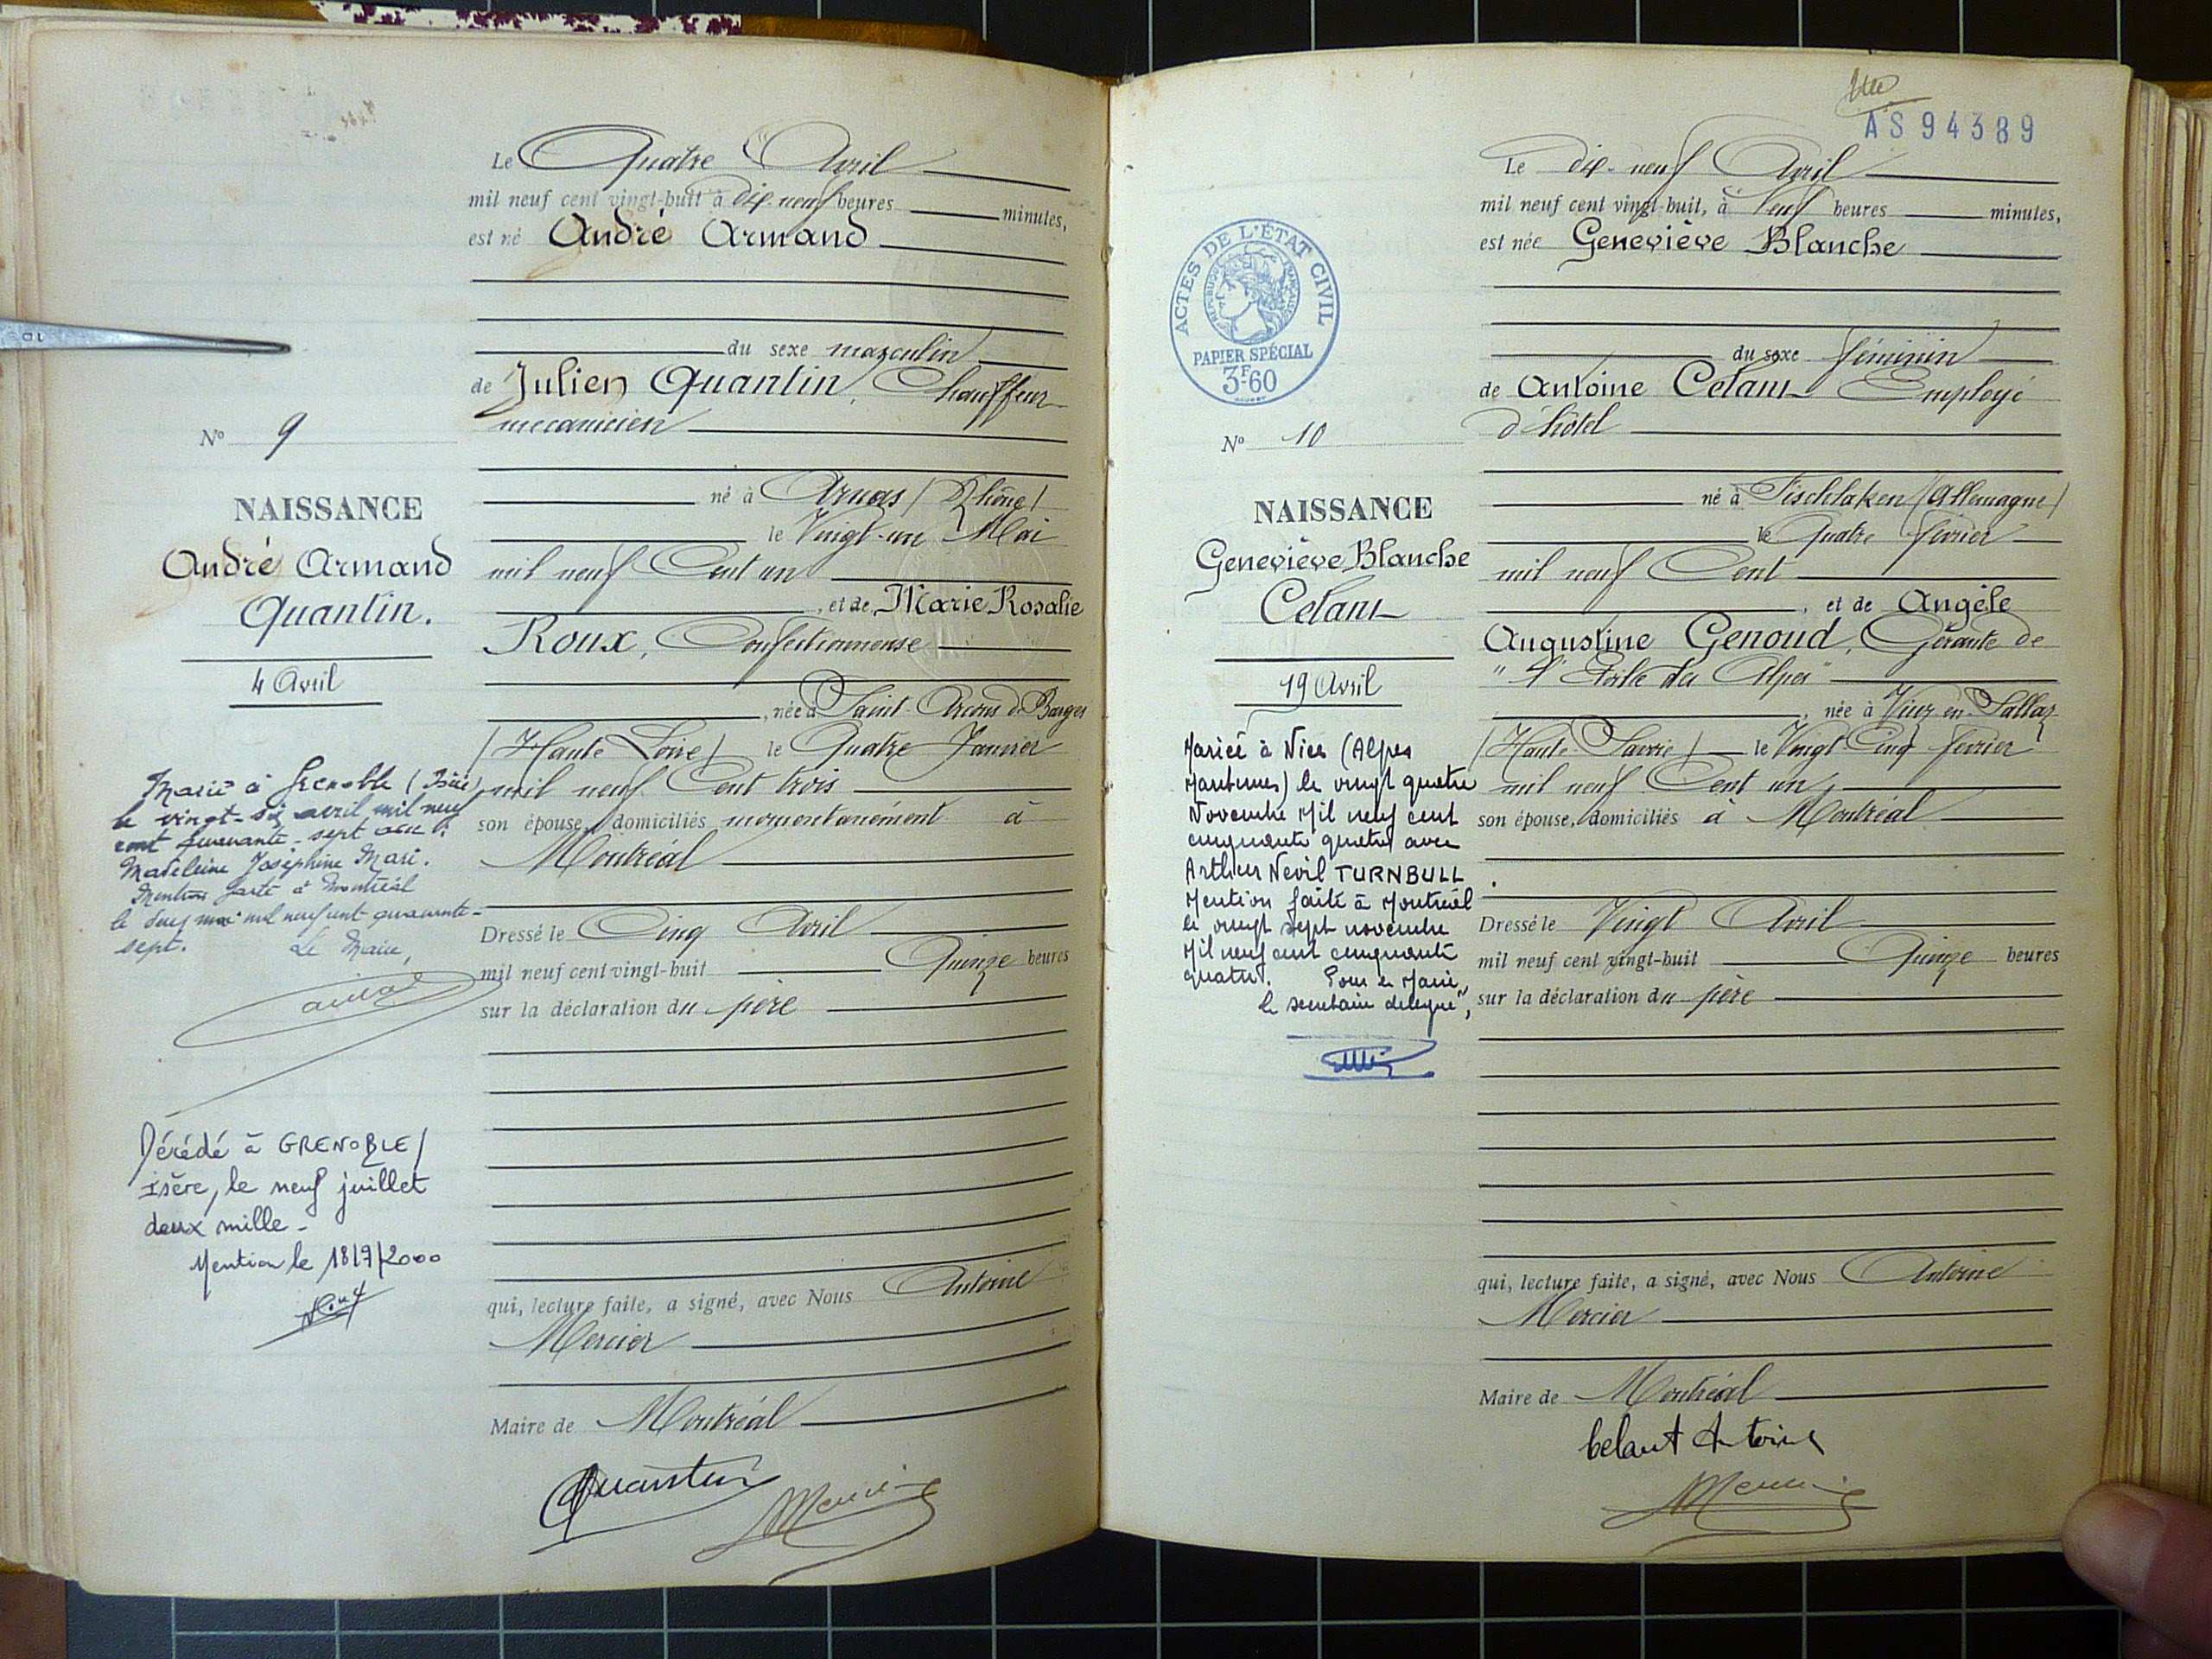 Le Quatre Avril
mil neuf cent vingt-huit à dix-neuf heures minutes,
est né André Armand
du sexe masculin
de Julien Quantin, Chauffeur
mécanicien
né à Arnas (Rhône)
le Vingt-un Mai
mil neuf Cent un
, et de Marie Rosalie
Roux, Confectionneuse
, née à Saint-Arcons de Barges
(Haute Loire) le Quatre Janvier
mil neuf Cent trois
son épouse, domiciliés momentanément à
Montréal
Dressé le Cinq Avril
mil neuf cent vingt-huit Quinze heures
sur la déclaration du père
qui, lecture faite, a signé, avec Nous Antoine
Mercier
Maire de Montréal
Quantin Mercier
No 9
NAISSANCE
André Armand
Quantin.
4 Avril
Marié à Grenoble (Isère)
le vingt-six avril mil neuf
cent quarante-sept avec
Madeleine Joséphine Mari.
Mention faite à Montréal
le deux mai mil neuf cent quarante-
sept. Le Maire,
Décédé à GRENOBLE/
isère, le neuf juillet
deux mille-
Mention le 18/7/2000
AS 94389
Le dix-neuf Avril
mil neuf cent vingt-huit, à Neuf heures minutes,
est née Geneviève Blanche
du sexe féminin
de Antoine Celant Employé
d'hôtel
né à Fischlaken (Allemagne)
le Quatre février
mil neuf Cent
, et de Angèle
Augustine Genoud, Gérante de
"l'Etoile des Alpes"
, née à Viuz-en-Sallaz
(Haute-Savoie) le Vingt Cinq février
mil neuf Cent un
son épouse, domiciliés à Montréal
Dressé le Vingt Avril
mil neuf cent vingt-huit Quinze heures
sur la déclaration du père
qui, lecture faite, a signé, avec Nous Antoine
Mercier
Maire de Montréal
Celant Antoine
Mercier
ACTES DE L'ÉTAT CIVIL
RÉPUBLIQUE FRANÇAISE
PAPIER SPÉCIAL
3F60
No 10
NAISSANCE
Geneviève Blanche
Celant
19 Avril
Mariée à Nice (Alpes
Maritimes) le vingt quatre
Novembre Mil neuf cent
cinquante quatre avec
Arthur Nevil TURNBULL
Mention faite à Montréal
le vingt sept novembre
Mil neuf cent cinquante
quatre. Pour le Maire,
le secrétaire délégué,